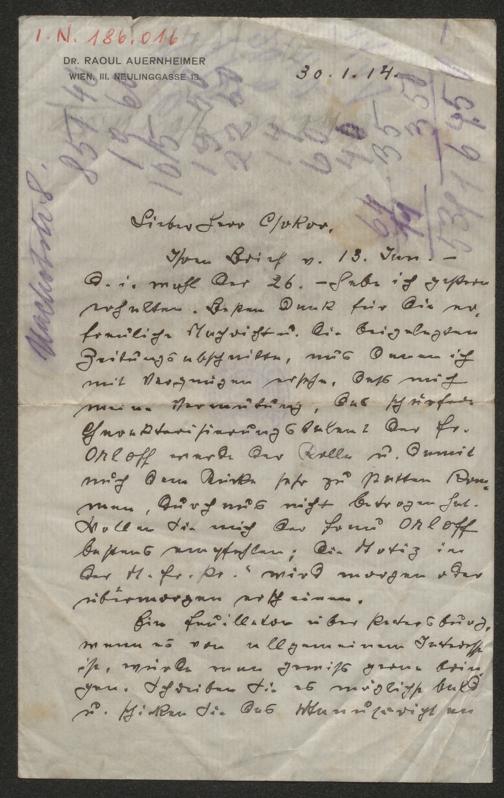 I. N. 186.016
DR. RAOUL AUERNHEIMER
WIEN, III. NEULINGGASSE 13.
30.1.14.
Lieber Herr Csokor,
Ihren Brief v. 13. Jan. –
d. i. wohl der 26. – habe ich gestern
erhalten. Besten Dank für die er-
freuliche Nachricht u. die beigelegten
Zeitungsabschnitte, aus denen ich
mit Vergnügen ersehe, dass mich
meine Vermutung, das scharfe
Charakterisierungstalent der Fr.
Orloff werde der Rolle u. damit
auch dem Stücke sehr zu statten kom-
men, durchaus nicht betrogen hat.
Wollen Sie mich der Frau Orloff
bestens empfehlen; die Notiz in
der N. Fr. Pr." wird morgen oder
übermorgen erscheinen.
Ein Feuilleton über Petersburg,
wenn es von allgemeinem Interesse
ist, würde man gewiss gerne brin-
gen. Schreiben Sie es möglichst bald
u. schicken Sie das Manuscript an